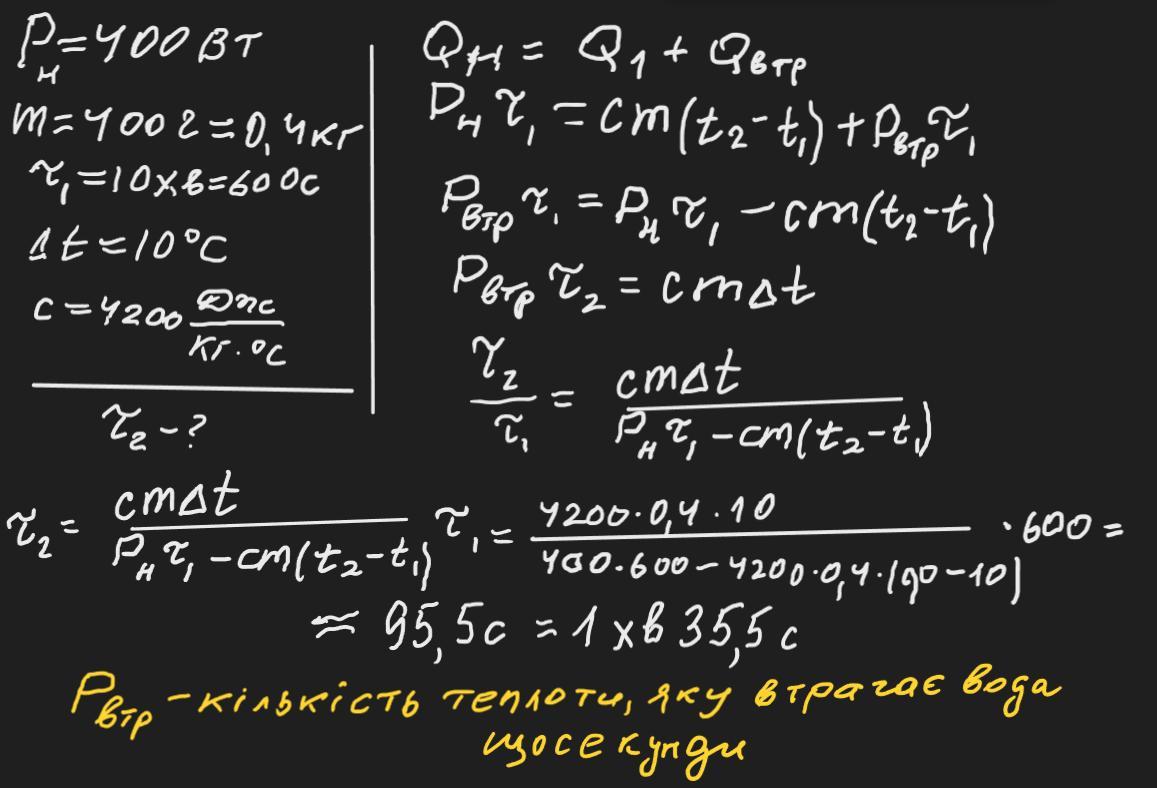 Pн = 400 Вт
m = 400 г = 0,4 кг
τ₁ = 10 хв = 600 с
Δt = 10 °C
c = 4200 Дж/(кг·°C)
τ₂ - ?
Qн = Q₁ + Qвтр
Pн τ₁ = cm(t₂ - t₁) + Pвтр τ₁
Pвтр τ₁ = Pн τ₁ - cm(t₂ - t₁)
Pвтр τ₂ = cmΔt
τ₂/τ₁ = cmΔt/(Pн τ₁ - cm(t₂ - t₁))
τ₂ = cmΔt/(Pн τ₁ - cm(t₂ - t₁)) τ₁ = (4200·0,4·10)/(400·600 - 4200·0,4·(90 - 10)) · 600 =
≈ 95,5 с = 1 хв 35,5 с
Pвтр - кількість теплоти, яку втрачає вода
щосекунди